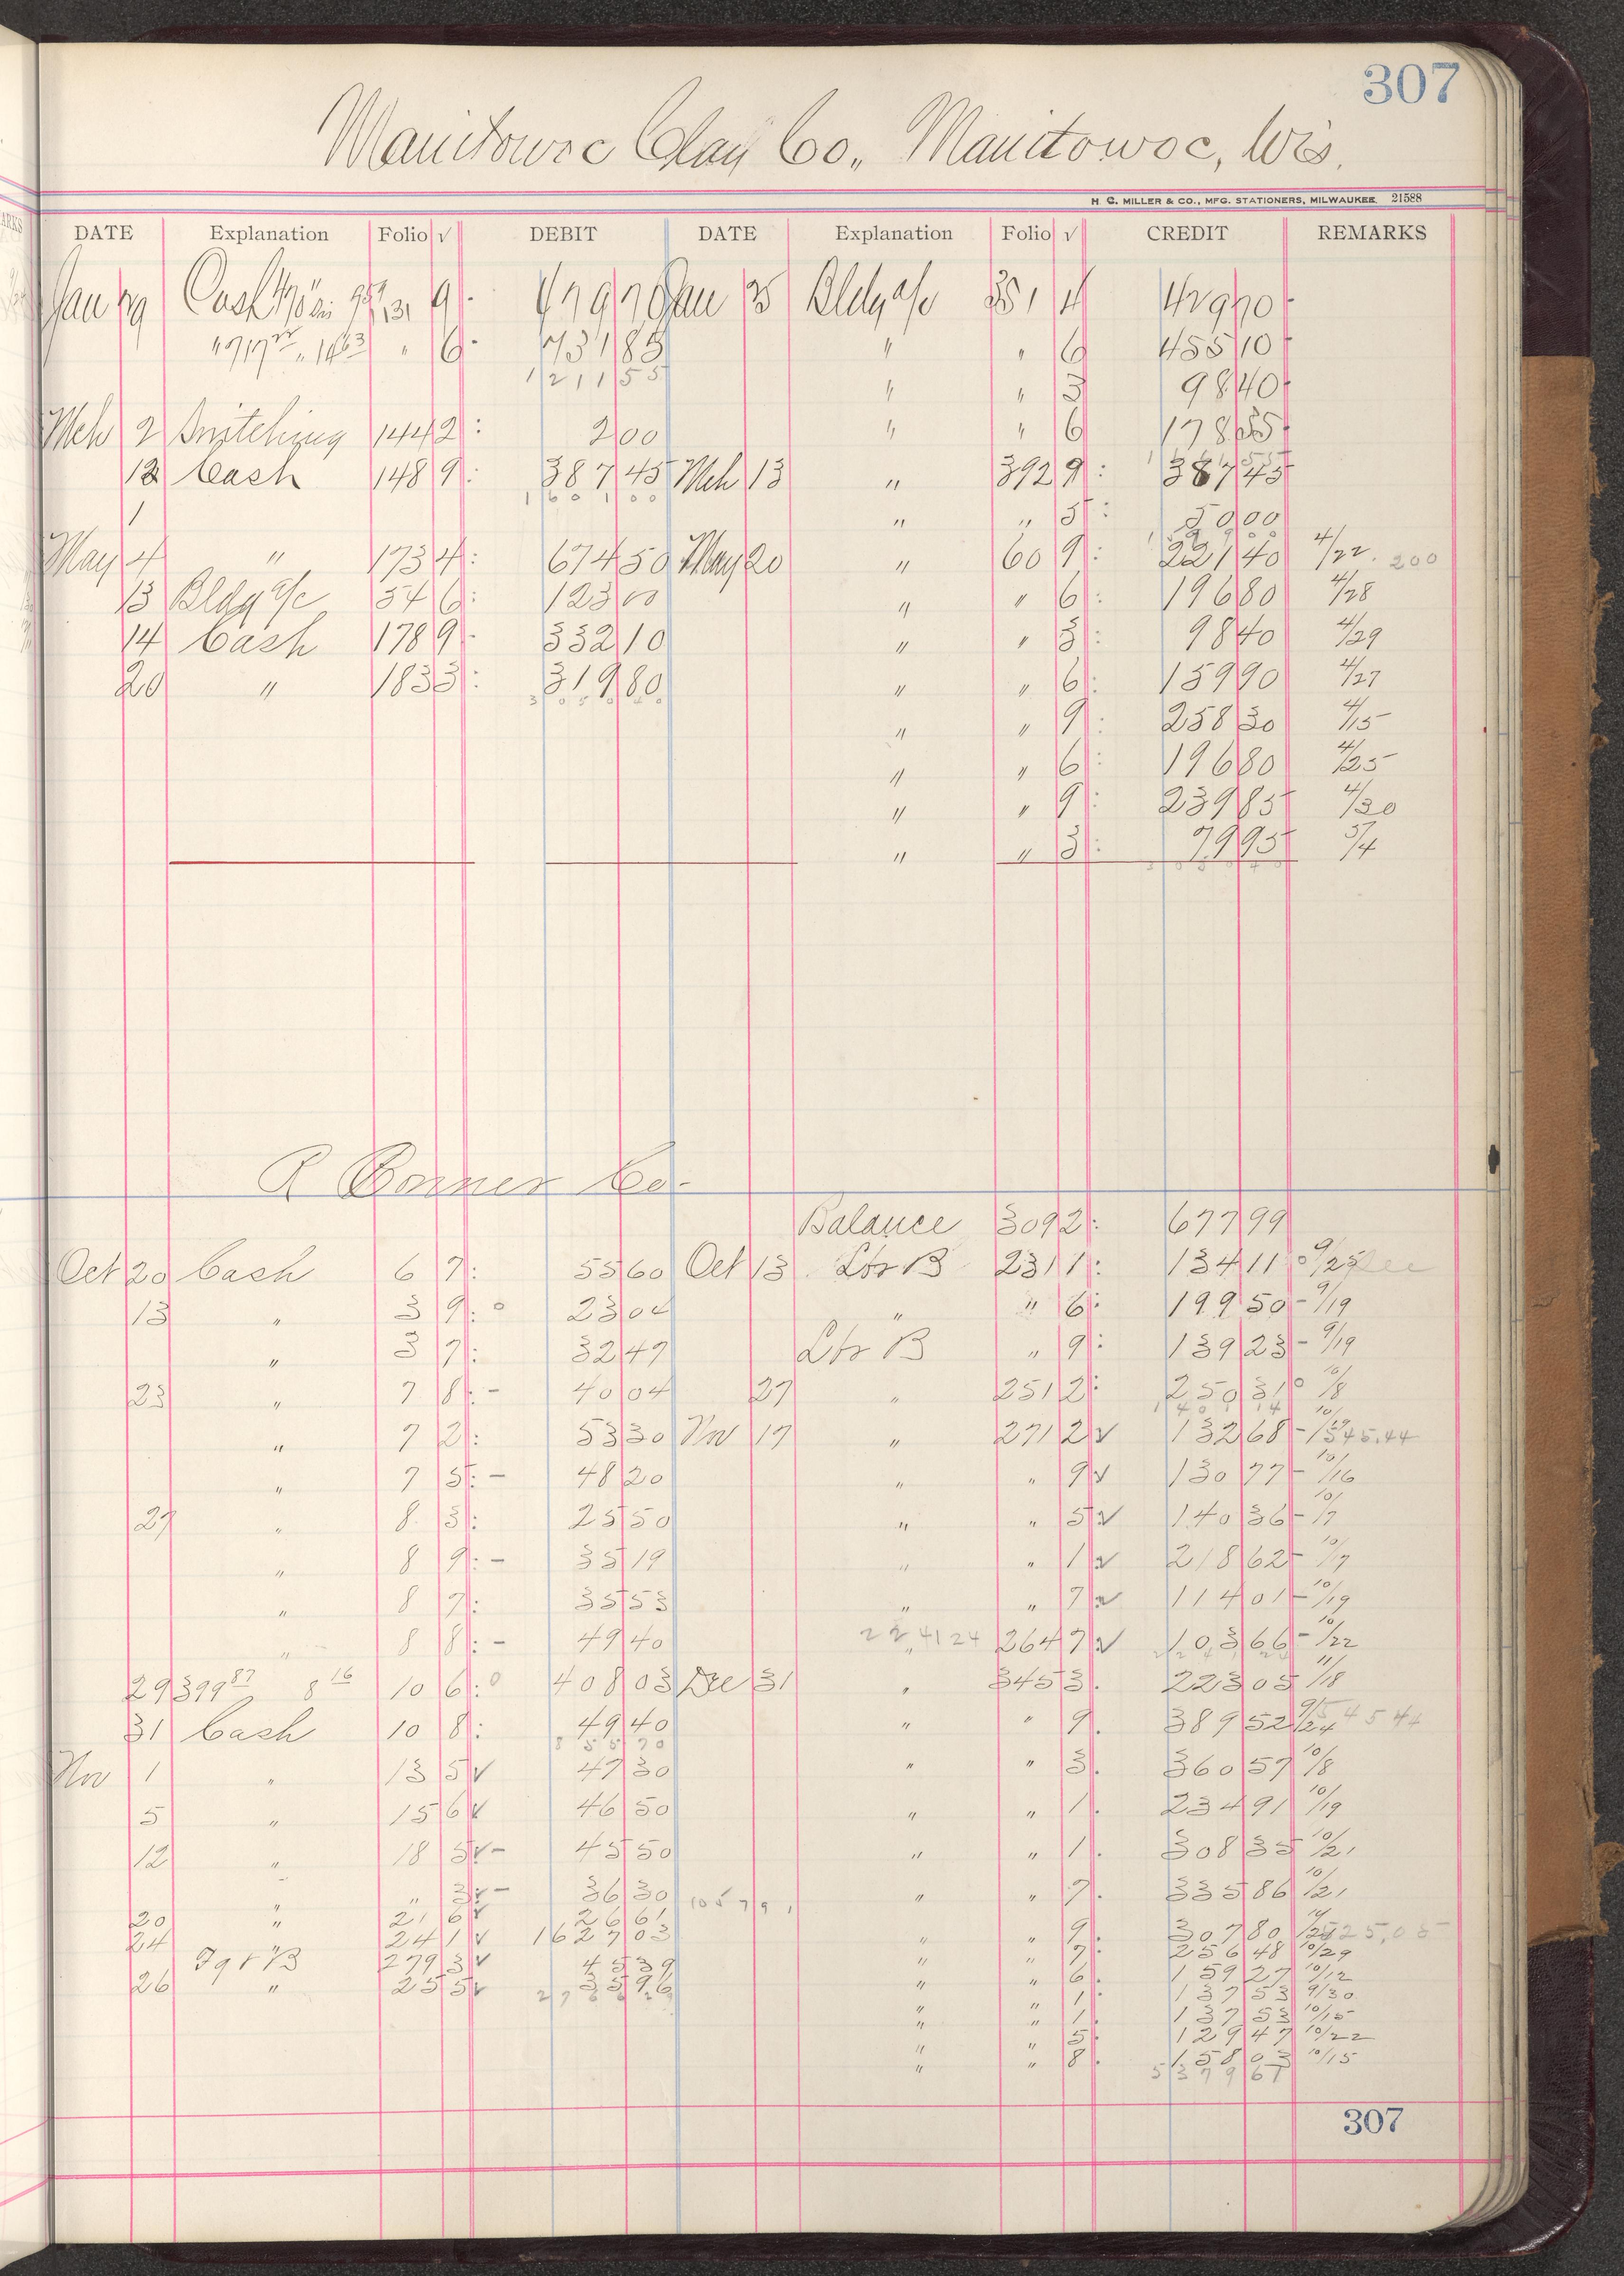 307
Manitowoc Clay Co., Manitowoc, Wis.
H. C. MILLER & CO., MFG. STATIONERS, MILWAUKEE. 21588
DATE Explanation Folio √ DEBIT DATE Explanation Folio √ CREDIT REMARKS
Jan 29 Cash 131 9 479 70 Jan 25 Bldg a/c 351 4 429 70
" 6 731 85 " " 6 455 10
1211 55 " " 3 98 40
Mch 2 Switching 144 2 2 00 " " 6 178 65
12 Cash 148 9 387 45 Mch 13 " 392 9 387 45
1600 1 00 " " 5 50 00
May 4 " 173 4 674 50 May 20 " 60 9 221 40 4/22. 200
13 Bldg a/c 54 6 123 00 " " 6 196 80 4/28
14 Cash 178 9 332 10 " " 3 98 40 4/29
20 " 183 3 319 80 " " 6 159 90 4/27
" " 9 258 30 4/15
" " 6 196 80 4/25
" " 9 239 85 4/30
" " 3 79 95 5/4
R Conner Co.
Balance 309 2 677 99
Oct 20 Cash 6 7 55 60 Oct 13 Lbr B 231 1 134 11 9/25
13 " 3 9 23 04 " " 6 199 50 - 9/19
" 3 7 32 47 Lbr B " 9 139 23 - 9/19
23 " 7 8 - 40 04 27 " 251 2 250 31 10/8
" 7 2 53 30 Nov 17 " 271 2 √ 132 68 - 1545.44
" 7 5 - 48 20 " " 9 √ 130 77 - 10/16
27 " 8 3 25 50 " " 5 √ 140 36 - 10/7
" 8 9 - 35 19 " " 1 √ 218 62 - 10/7
" 8 7 35 53 " " 7 √ 114 01 - 10/19
" 8 8 - 49 40 2241 24 " 264 7 √ 103 66 - 10/22
29 399 87 8 16 10 6 408 03 Dec 31 " 345 3 223 05 11/18
31 Cash 10 8 49 40 " " 9 389 52 9/24
855 70
Nov 1 " 13 5 √ 47 30 " " 3 360 57 10/8
5 " 15 6 √ 46 50 " " 1 234 91 10/19
12 " 18 5 √ - 45 50 " " 1 308 35 10/21
" " 3 √ - 36 30 1057 91 " " 7 335 86 10/21
20 " 21 6 √ 26 61 " " 9 307 80
24 " 24 1 √ 1627 03 " " 7 256 48 10/29
Fgt B 279 3 √ 45 39 " " 6 159 27 10/12
26 " 25 5 √ 35 96 " " 1 137 53 9/30
" " 1 137 53 10/15
" " 5 129 47 10/22
" " 8 158 03 10/15
5379 67
307